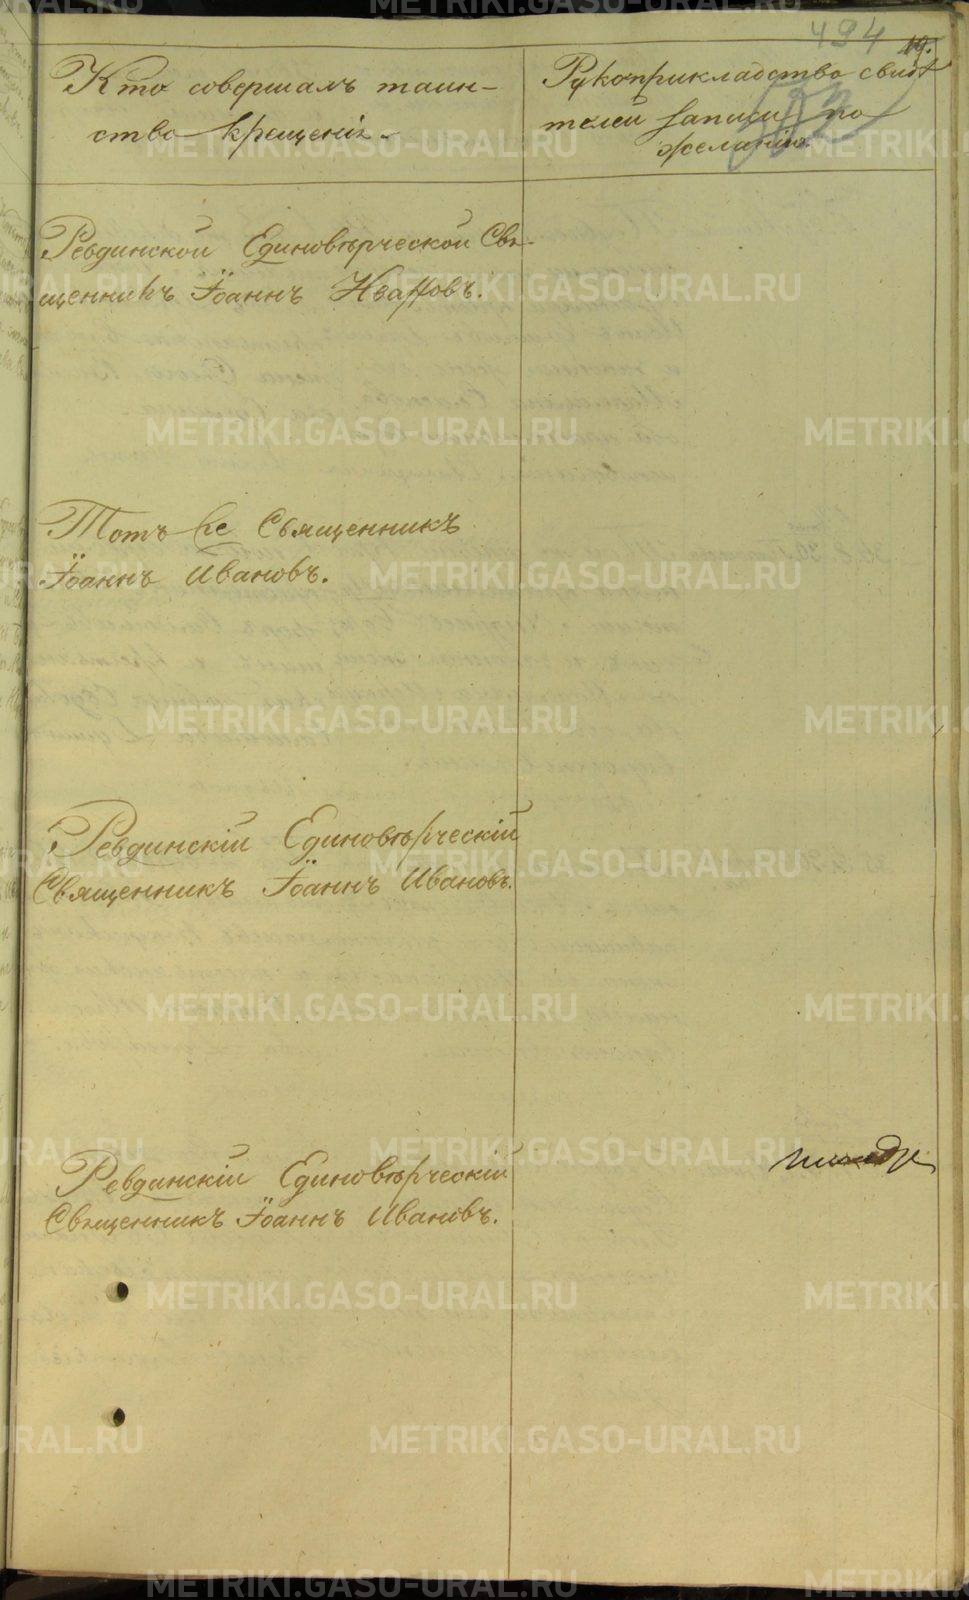 494 19.
Кто совершалъ таин-
ство крещенія.
Рукоприкладство свидѣ
телей записи по
желанію.
Ревдинской Единовѣрческой Свя-
щенникъ Іоаннъ Ивановъ.
Тотъ же Священникъ
Іоаннъ Ивановъ.
Ревдинскій Единовѣрческій
Священникъ Іоаннъ Ивановъ.
Ревдинскій Единовѣрческій
Священникъ Іоаннъ Ивановъ.
METRIKI.GASO-URAL.RU